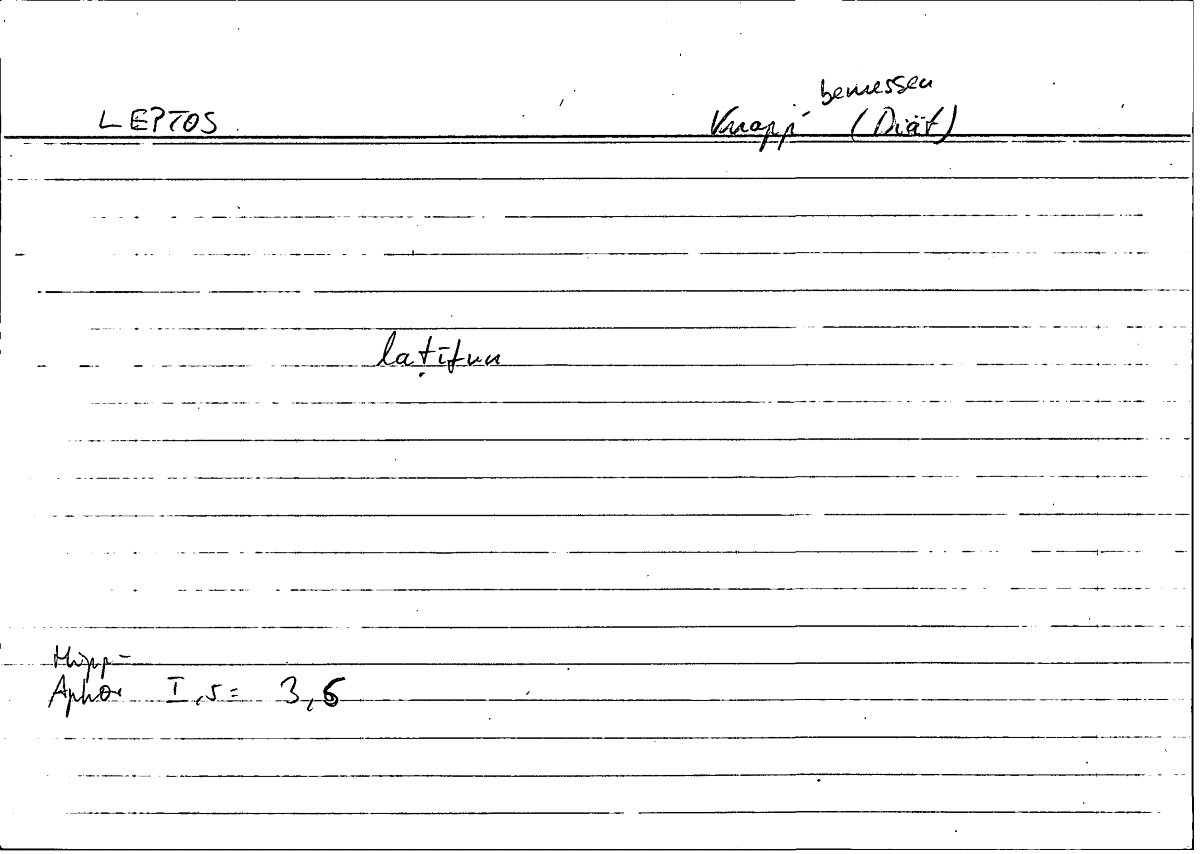 LEPTOS knapp bemessen (Diät)
laṭīfun
Hipp-
Aphor I,5= 3,6